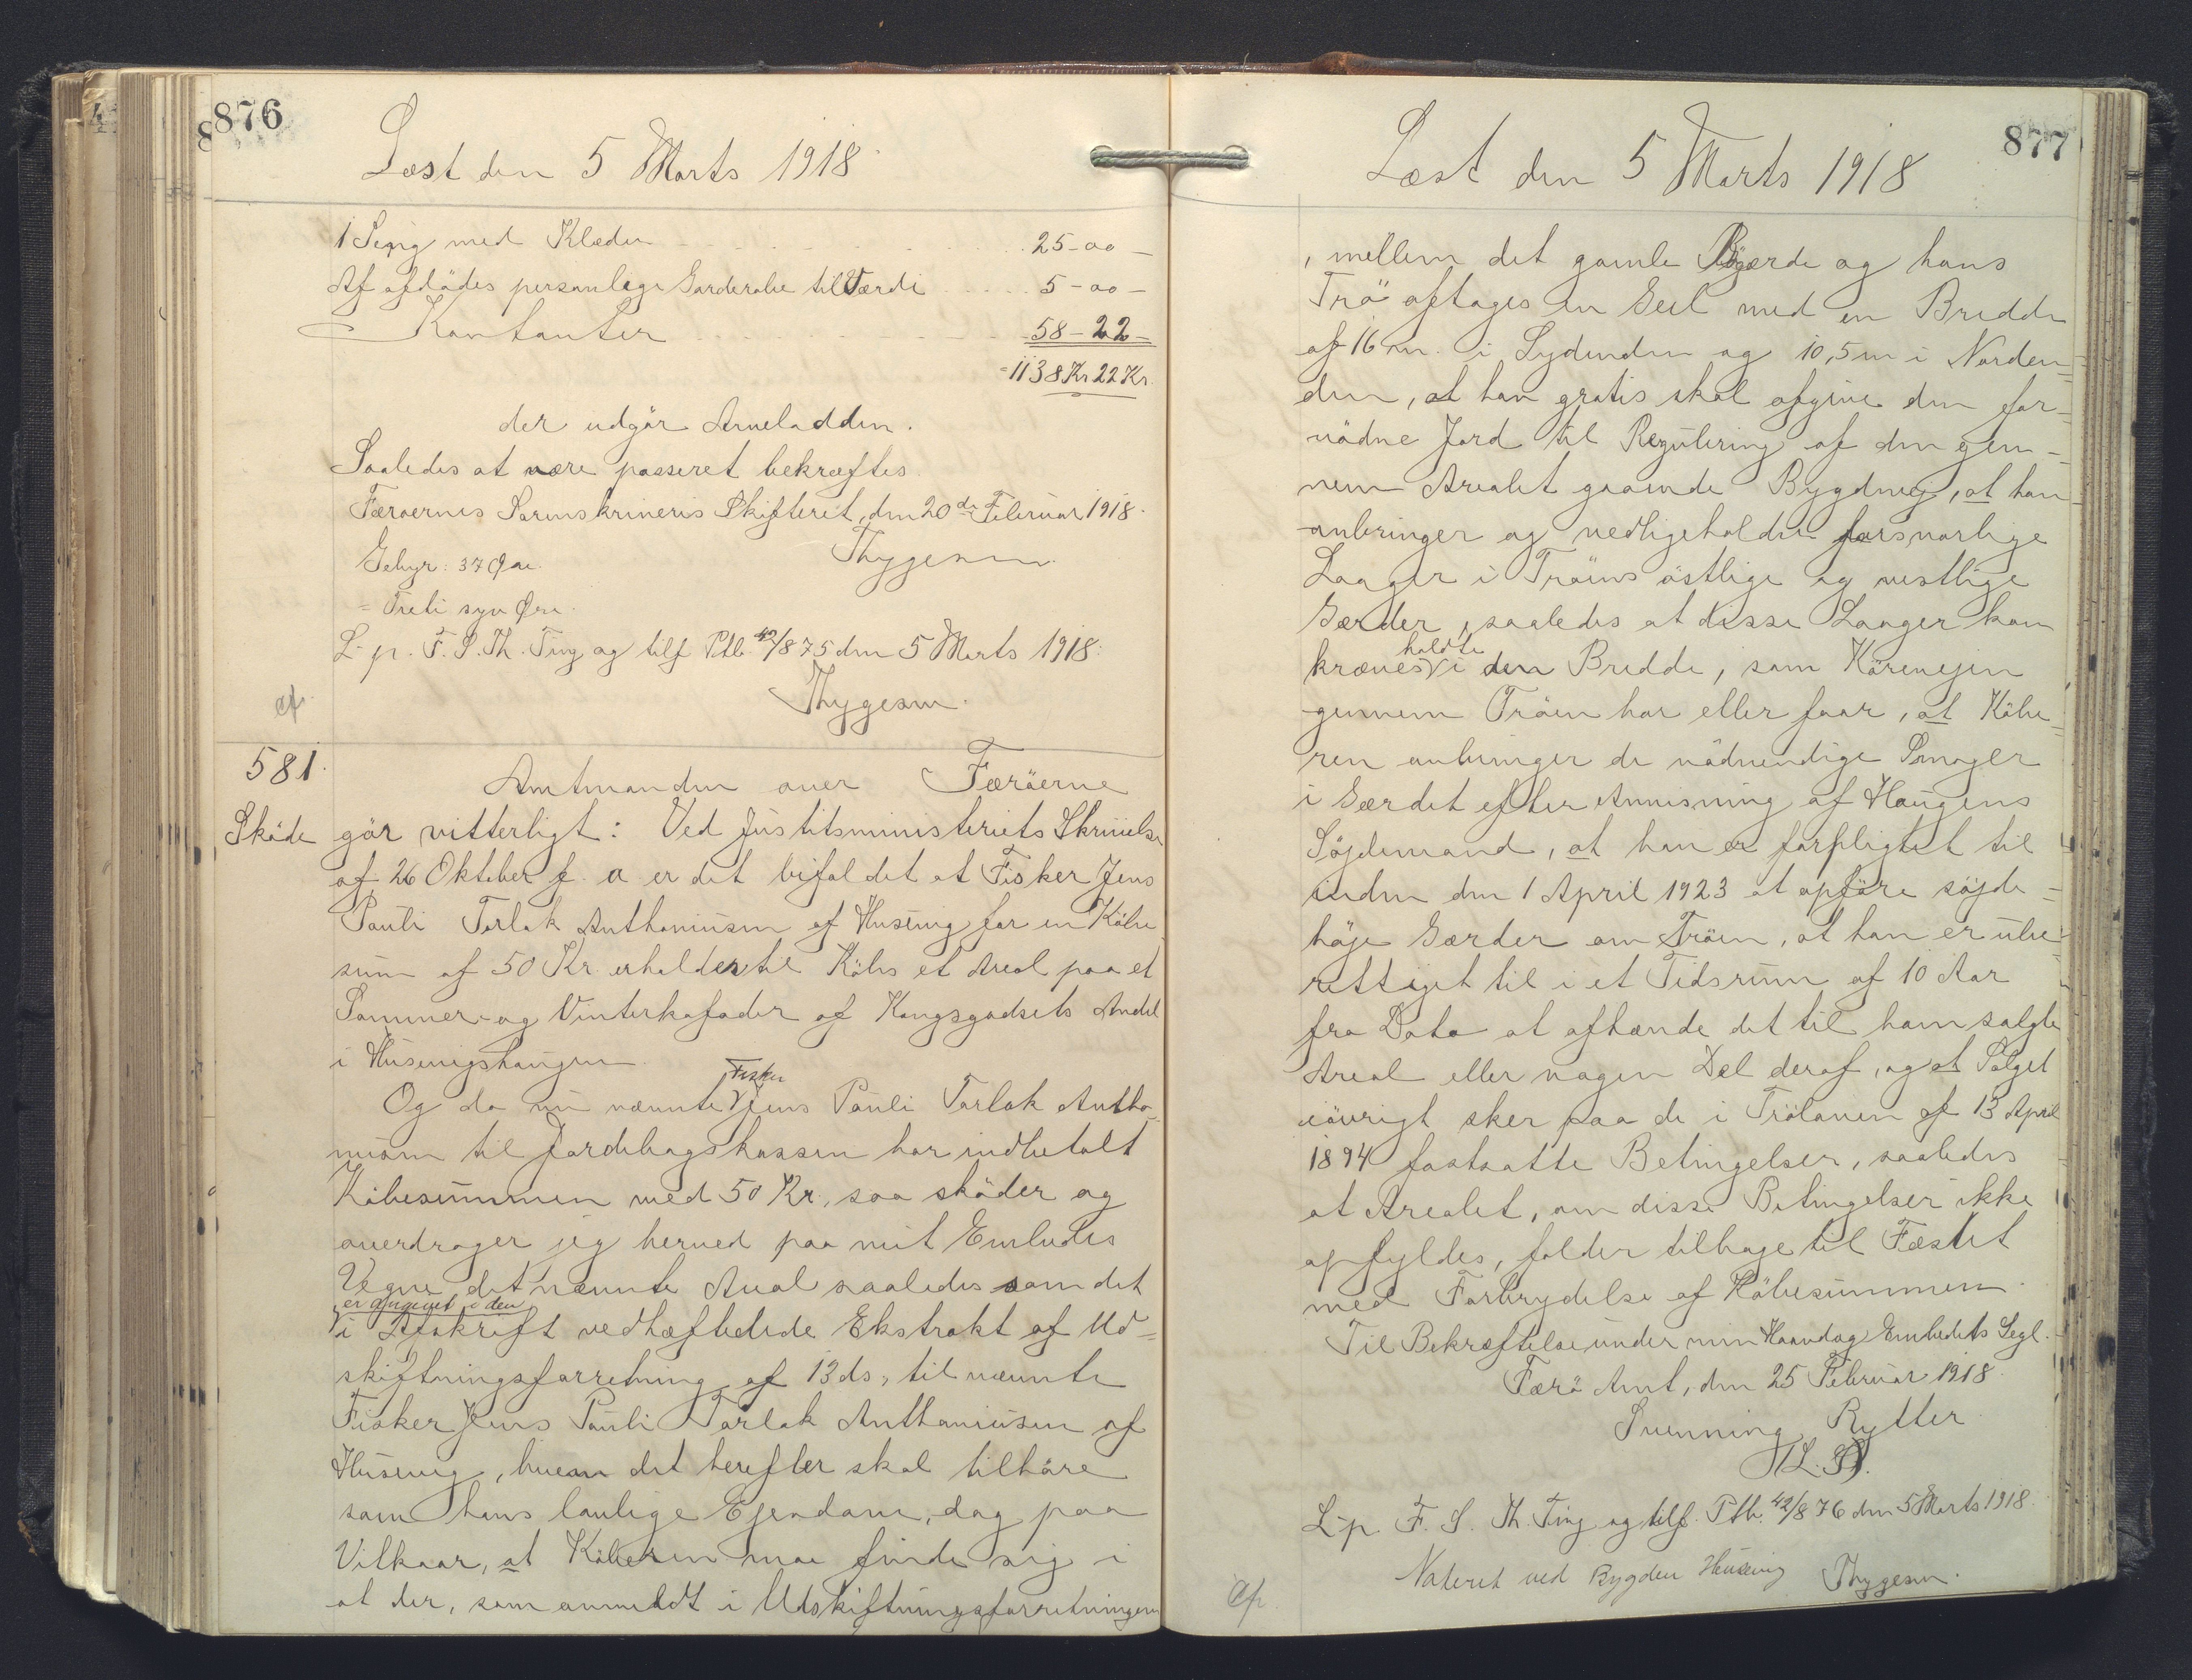 876
Læst den 5 Marts 1918
1 Seng med Klæder 25-00-
Af afdødes personlige Garderobe til Værdi 5-00-
Kontanter 58-22-
=1138 Kr 22 Kr.
der udgör Arveladden.
Saaledes at være passeret bekræftes
Færøernes Sorenskriveris Skifteret, den 20de Februar 1918.
Gebyr: 37 Øre. Thygesen
= Treti syv Øre.
L-p. F. S. Th. Ting og tilf Ptb. 42/875 den 5 Marts 1918.
Thygesen.
cf.
581.
Amtmanden over Færöerne
Sköde gör vitterligt: Ved Justitsministeriets Skrivelse
af 26 Oktober f. a er det bifaldet at Fisker Jens
Pauli Torlak Anthoniusen af Husevig for en Købe
sum af 50 Kr erholder til Köbs et Areal paa et
Sommer- og Vinterkofoder af Kongsgodsets Andel
i Husevigshaugen
Og da nu nævnte Fisker Jens Pauli Torlak Antho-
niusen til Jordebogskassen har indbetalt
Köbesummen med 50 Kr., saa sköder og
overdrager jeg herved paa mit Embedes
Vegne det nævnte Areal saaledes som det
er angivet i den
i Afskrift vedhæftedede Ekstrakt af Ud-
skiftningsforretning af 13 ds, til nævnte
Fisker Jens Pauli Torlak Anthoniusen af
Husevig, hvem det herefter skal tilhöre
som hans lovlige Ejendom, dog paa
Vilkaar, at Köberen maa finde sig i
at der, som anmeldt i Udskiftningsforretningen
877
Læst den 5 Marts 1918
, mellem det gamle Bøgærde og hans
Trö aftages en Geil med en Bredde
af 16 m. i Sydenden og 10,5 m i Norden=
den, at han gratis skal afgive den for-
nödne Jord til Regulering af den gen-
nem Arealet gaaende Bygdvej, at han
anbringer og vedligeholder forsvarlige
Laager i Tröens östlige og vestlige
Gærder, saaledes at disse Laager kan
kræves holdte i den Bredde, som Körevejen
gennem Tröen har eller faar, at Köbe=
ren anbringer de nödvendige Smoger
i Gærdet efter Anvisning af Haugens
Söjdemand, at han er forpligtet til
inden den 1 April 1923 at opföre söjde=
höje Gærder om Tröen, at han er ube=
rettiget til i et Tidsrum af 10 Aar
fra Dato at afhænde det til ham solgte
Areal eller nogen Del deraf, og at Salget
iövrigt sker paa de i Tröloven af 13 April
1894 fastsatte Betingelser, saaledes
at Arealet, om disse Betingelser ikke
opfyldes, falder tilbage til Fæstet
med Forbrydelse af Köbesummen.
Til Bekræftelse under min Haand og Embedets Segl.
Færö Amt, den 25 Februar 1918.
Svenning Rytter
L.S.
L-p. F. S. Th. Ting og tilf. Ptb. 42/876 den 5 Marts 1918
Noteret ved Bygden Husevig Thygesen.
cf.